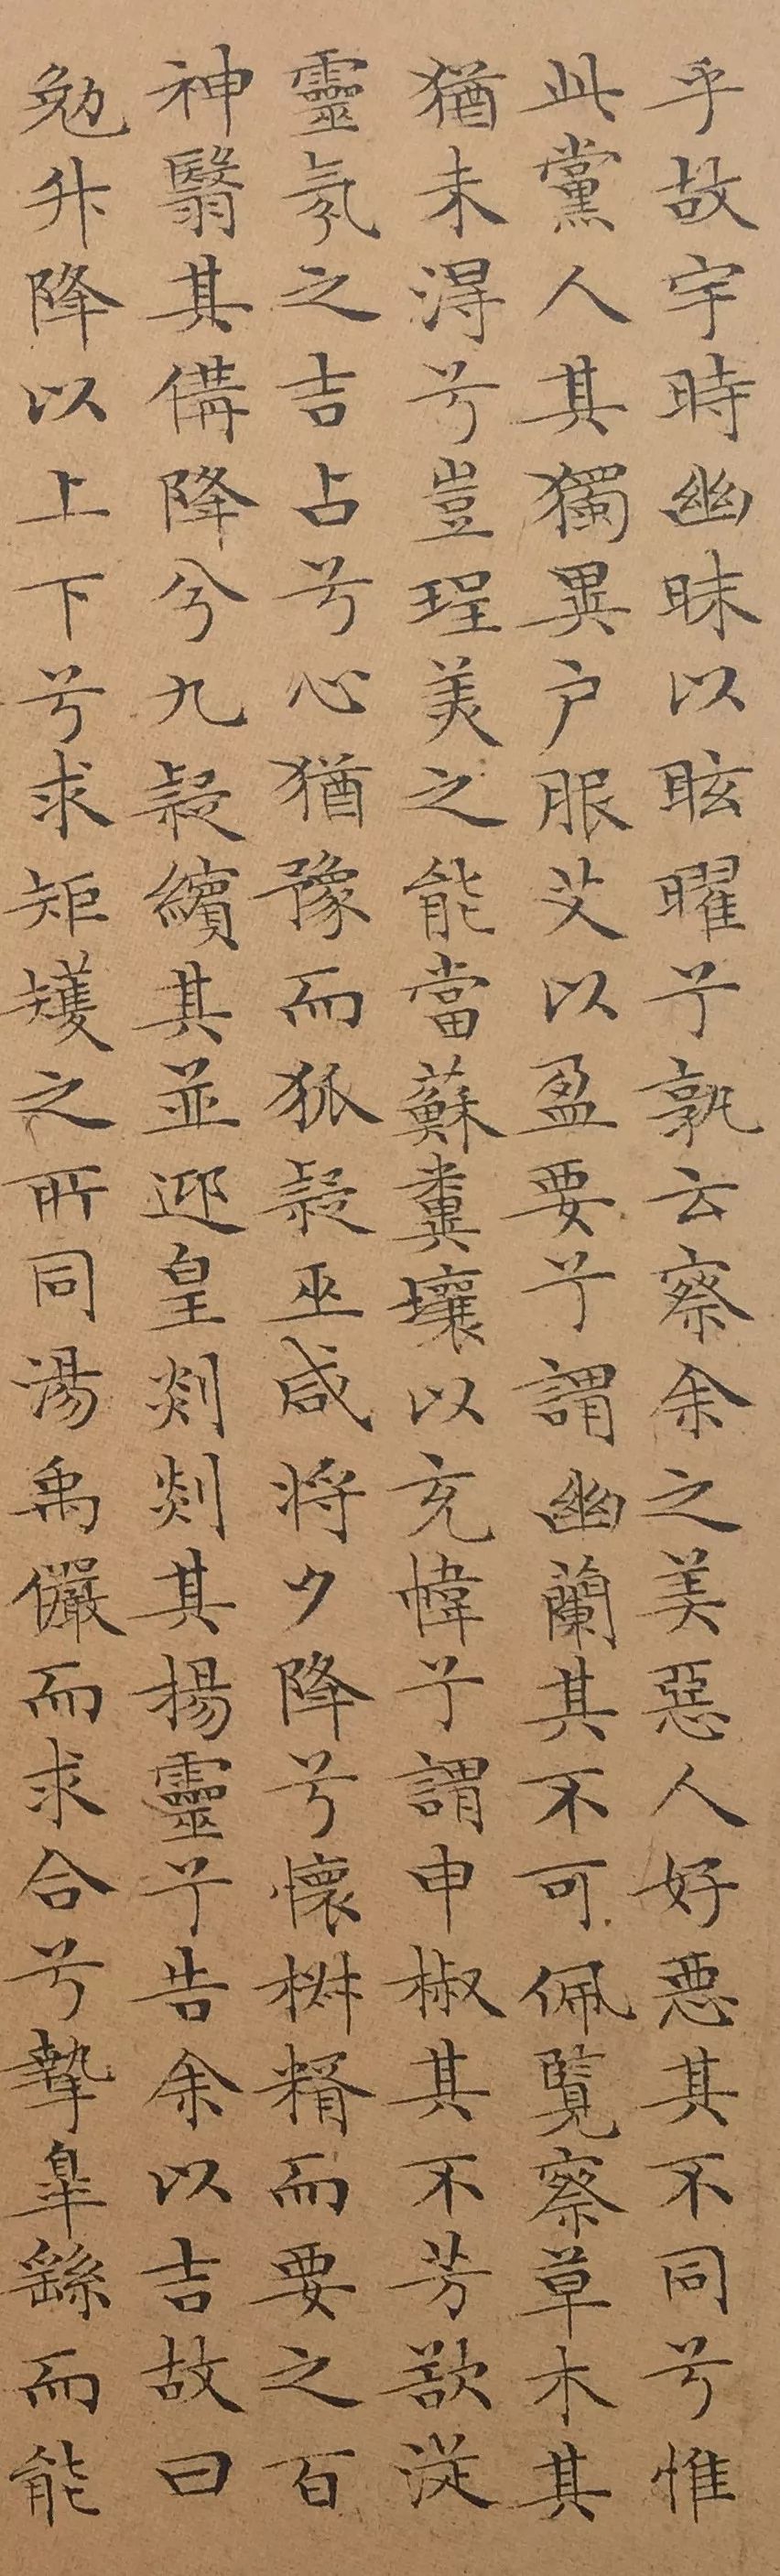 乎故宇時幽昧以眩曜兮孰云察余之美惡人好惡其不同兮惟
此黨人其獨異户服艾以盈要兮謂幽蘭其不可佩覽察草木其
猶未得兮豈珵美之能當蘇糞壤以充幃兮謂申椒其不芳欲從
靈氛之吉占兮心猶豫而狐疑巫咸將夕降兮懷椒糈而要之百
神翳其備降兮九疑繽其並迎皇剡剡其揚靈兮告余以吉故曰
勉升降以上下兮求矩矱之所同湯禹儼而求合兮摯皋繇而能